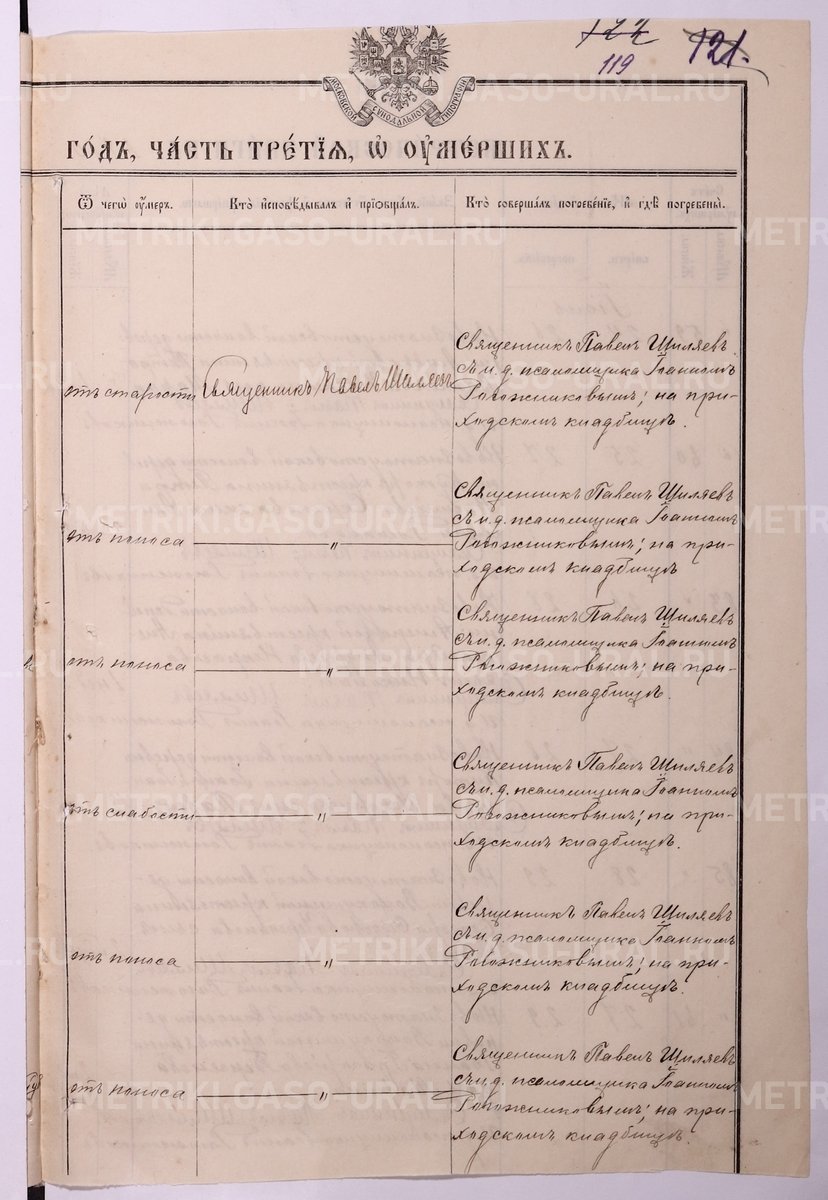 122
119
121.
МОСКОВСКОЙ СУНОДАЛЬНОЙ ТИПОГРАФІИ
ГО́ДЪ, ЧА́СТЬ ТРЕ́ТІѦ, Ѡ҆ ОУ҆МЕ́РШИХЪ.
Ѿ чегѡ̀ оу҆́меръ.
Кто̀ и҆сповѣ́дывалъ и҆ прїѡбща́лъ.
Кто̀ соверша́лъ погребе́нїе, и҆ гдѣ̀ погребены̀.
отъ старости
Священникъ Павелъ Шиляевъ
Священникъ Павелъ Шиляевъ
съ и. д. псаломщика Іоанномъ
Рогожниковымъ; на при-
ходскомъ кладбищѣ.
отъ поноса
〃
Священникъ Павелъ Шиляевъ
съ и. д. псаломщика Іоанномъ
Рогожниковымъ; на при-
ходскомъ кладбищѣ
отъ поноса
〃
Священникъ Павелъ Шиляевъ
съ и. д. псаломщика Іоанномъ
Рогожниковымъ; на при-
ходскомъ кладбищѣ.
отъ слабости
〃
Священникъ Павелъ Шиляевъ
съ и. д. псаломщика Іоанномъ
Рогожниковымъ; на при-
ходскомъ кладбищѣ.
отъ поноса
〃
Священникъ Павелъ Шиляевъ
съ и. д. псаломщика Іоанномъ
Рогожниковымъ; на при-
ходскомъ кладбищѣ.
отъ поноса
〃
Священникъ Павелъ Шиляевъ
съ и. д. псаломщика Іоанномъ
Рогожниковымъ; на при-
ходскомъ кладбищѣ.
METRIKI.GASO-URAL.RU